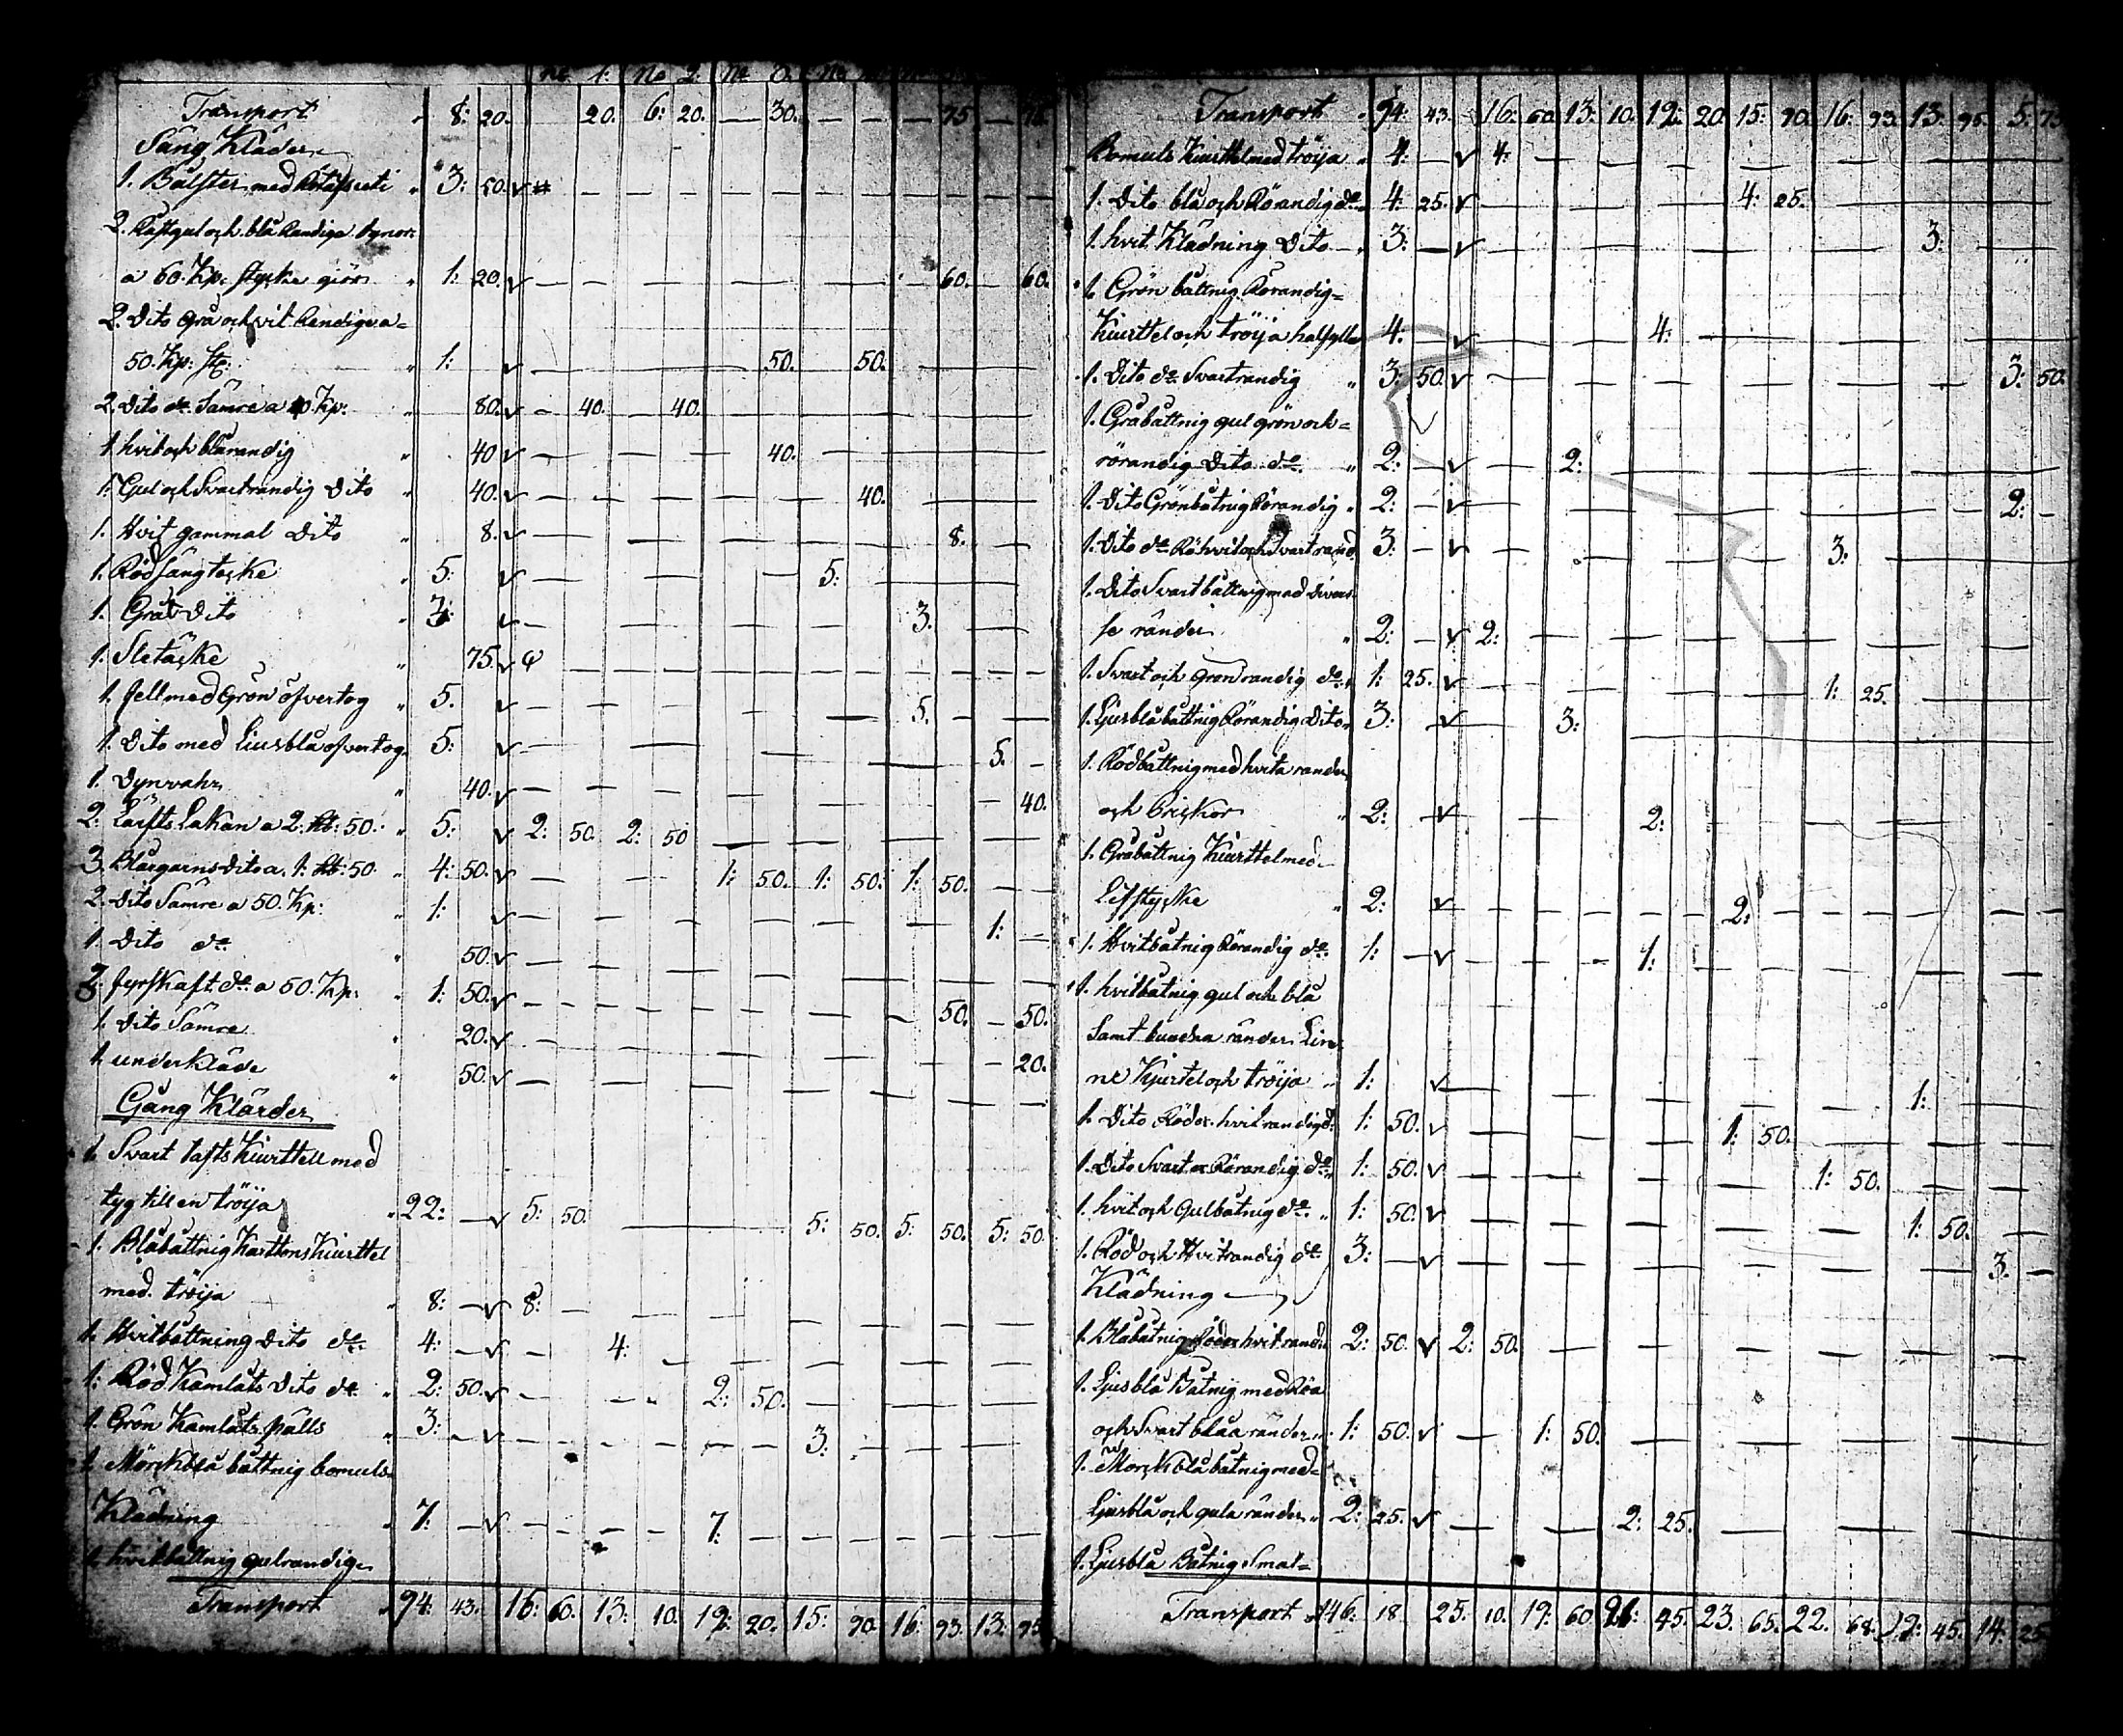 No 1: No 2: No
Transport " 8: 20. 20. 6: 20. — 30. — — — 75 —
Säng Kläder
1. Bålster med " 3: 50. — — — — —
2. och blå Randiga
a 60. Kp: stycke giör " 1: 20. — — — 60. — 60.
2. Dito Grå och vit Randige a=
50. Kp: st: " 1: — — — 50. 50.
2. Dito do Sämre a 40. Kp: " 80. — 40. — 40.
1 hvit och blårandig " 40 — — — 40.
1. Gul och Svartrandig Dito " 40. — — — 40.
1. Hvit gammal Dito " 8. — — — 8. —
1. Röd sängtäcke " 5: — — — 5: — —
1. Grå Dito " 3: — — — 3. —
1. Sletäcke " 75. — — —
1. fell med Grön öfvertog " 5. — — — 5. — —
1. Dito med Liusblå öfvertog 5: — — — 5. —
1. Dynvahr " 40. — — — 40.
2. Lärfts Lakan a 2: 50. " 5: 2: 50. 2: 50 — — —
3. Blårgarns Dito a. 1: 50. " 4: 50. — — 1: 50. 1: 50. 1: 50. — —
2. Dito Sämre a 50. Kp: " 1: — — — 1: —
1. Dito do " 50. — — —
3. fyrskaft do a 50. Kp: " 1: 50. — — — 50. — 50.
1. Dito Sämre " 20. — — — 20.
1. underkläde " 50. — — —
Gång Klärder
1. Svart tafts Kiurttell med
tyg till en tröija " 22: — 5: 50. — — 5: 50. 5: 50. 5: 50
1. Blåbattnig Karttons Kiurttel
med tröija " 8: — 8: — — —
1. Hvitbattning Dito do 4: — — 4: — — —
1: Röd Kamlåts Dito do " 2: 50. — — 2: 50. — —
1. Grön Kamlåts Palls " 3: — — — 3. — —
1. Mörckblå battnig bomuls
Klädning " 7: — — — 7. — —
1. hvitbattnig gulrandig
Transport " 94: 43. 16: 60. 13: 10. 19: 20. 15: 90. 16: 93. 13: 95
Transport " 94: 43. 16: 60 13: 10. 19: 20 15: 90. 16: 93. 13: 95. 5: 75
Bomuls Kiurttel med tröija " 4: — 4: — — —
1. Dito blå och Rörandig do 4: 25. — — 4: 25. — —
1. hvit Klädning Dito " 3: — — — 3: —
1. Grön battnig Rörandig=
Kiurttel och tröija halfylle 4: — — 4: — —
1. Dito do Svartrandig " 3: 50. — — — 3: 50.
1. Gråbattnig gul grön och=
rörandig Dito do " 2: — — 2: — —
1. Dito Grönbatnig Rörandig " 2: — — — 2: —
1. Dito do Rö hvit och Svart rand 3: — — — 3. —
1. Dito Svart battnig med diver
se ränder " 2: — 2: — —
1. Svart och Grön randig do " 1: 25. — — 1: 25. —
1. Ljusblå battnig Rörandig Dito " 3: — — 3: —
1. Rödbattnig med hvita ränder
och Brickor " 2: — — 2: — —
1. Gråbattnig Kiurttel med
Lifstycke " 2: — — 2: — —
1. Hvitbatnig Rörandig do 1: — — 1: — —
1. hvitbatnig gul och blå
Samt bundna ränder Lin
ne Kjurtel och tröija " 1: — — — 1: —
1. Dito Röd hvit randig do 1: 50. — — 1: 50. — —
1. Dito Svart Rörandig do " 1: 50. — — 1: 50. —
1. hvit och Gulbatnig do " 1: 50. — — 1: 50. —
1. Röd och Hvitrandig do 3: — — — 3. —
Klädning
1. Blåbatnig Röd hvit rand 2: 50. 2: 50. — —
1. Ljusblå Batnig med Röa
och Svart blåa ränder " 1: 50. — 1: 50. — —
1. Mörckblå batnig med=
Ljusblå och gula ränder " 2: 25. — — 2: 25. — —
1. Ljusblå Batnig Smal=
Transport " 146: 18. 25. 10. 19: 60. 26: 45. 23. 65. 22. 68. 19: 45. 14: 25